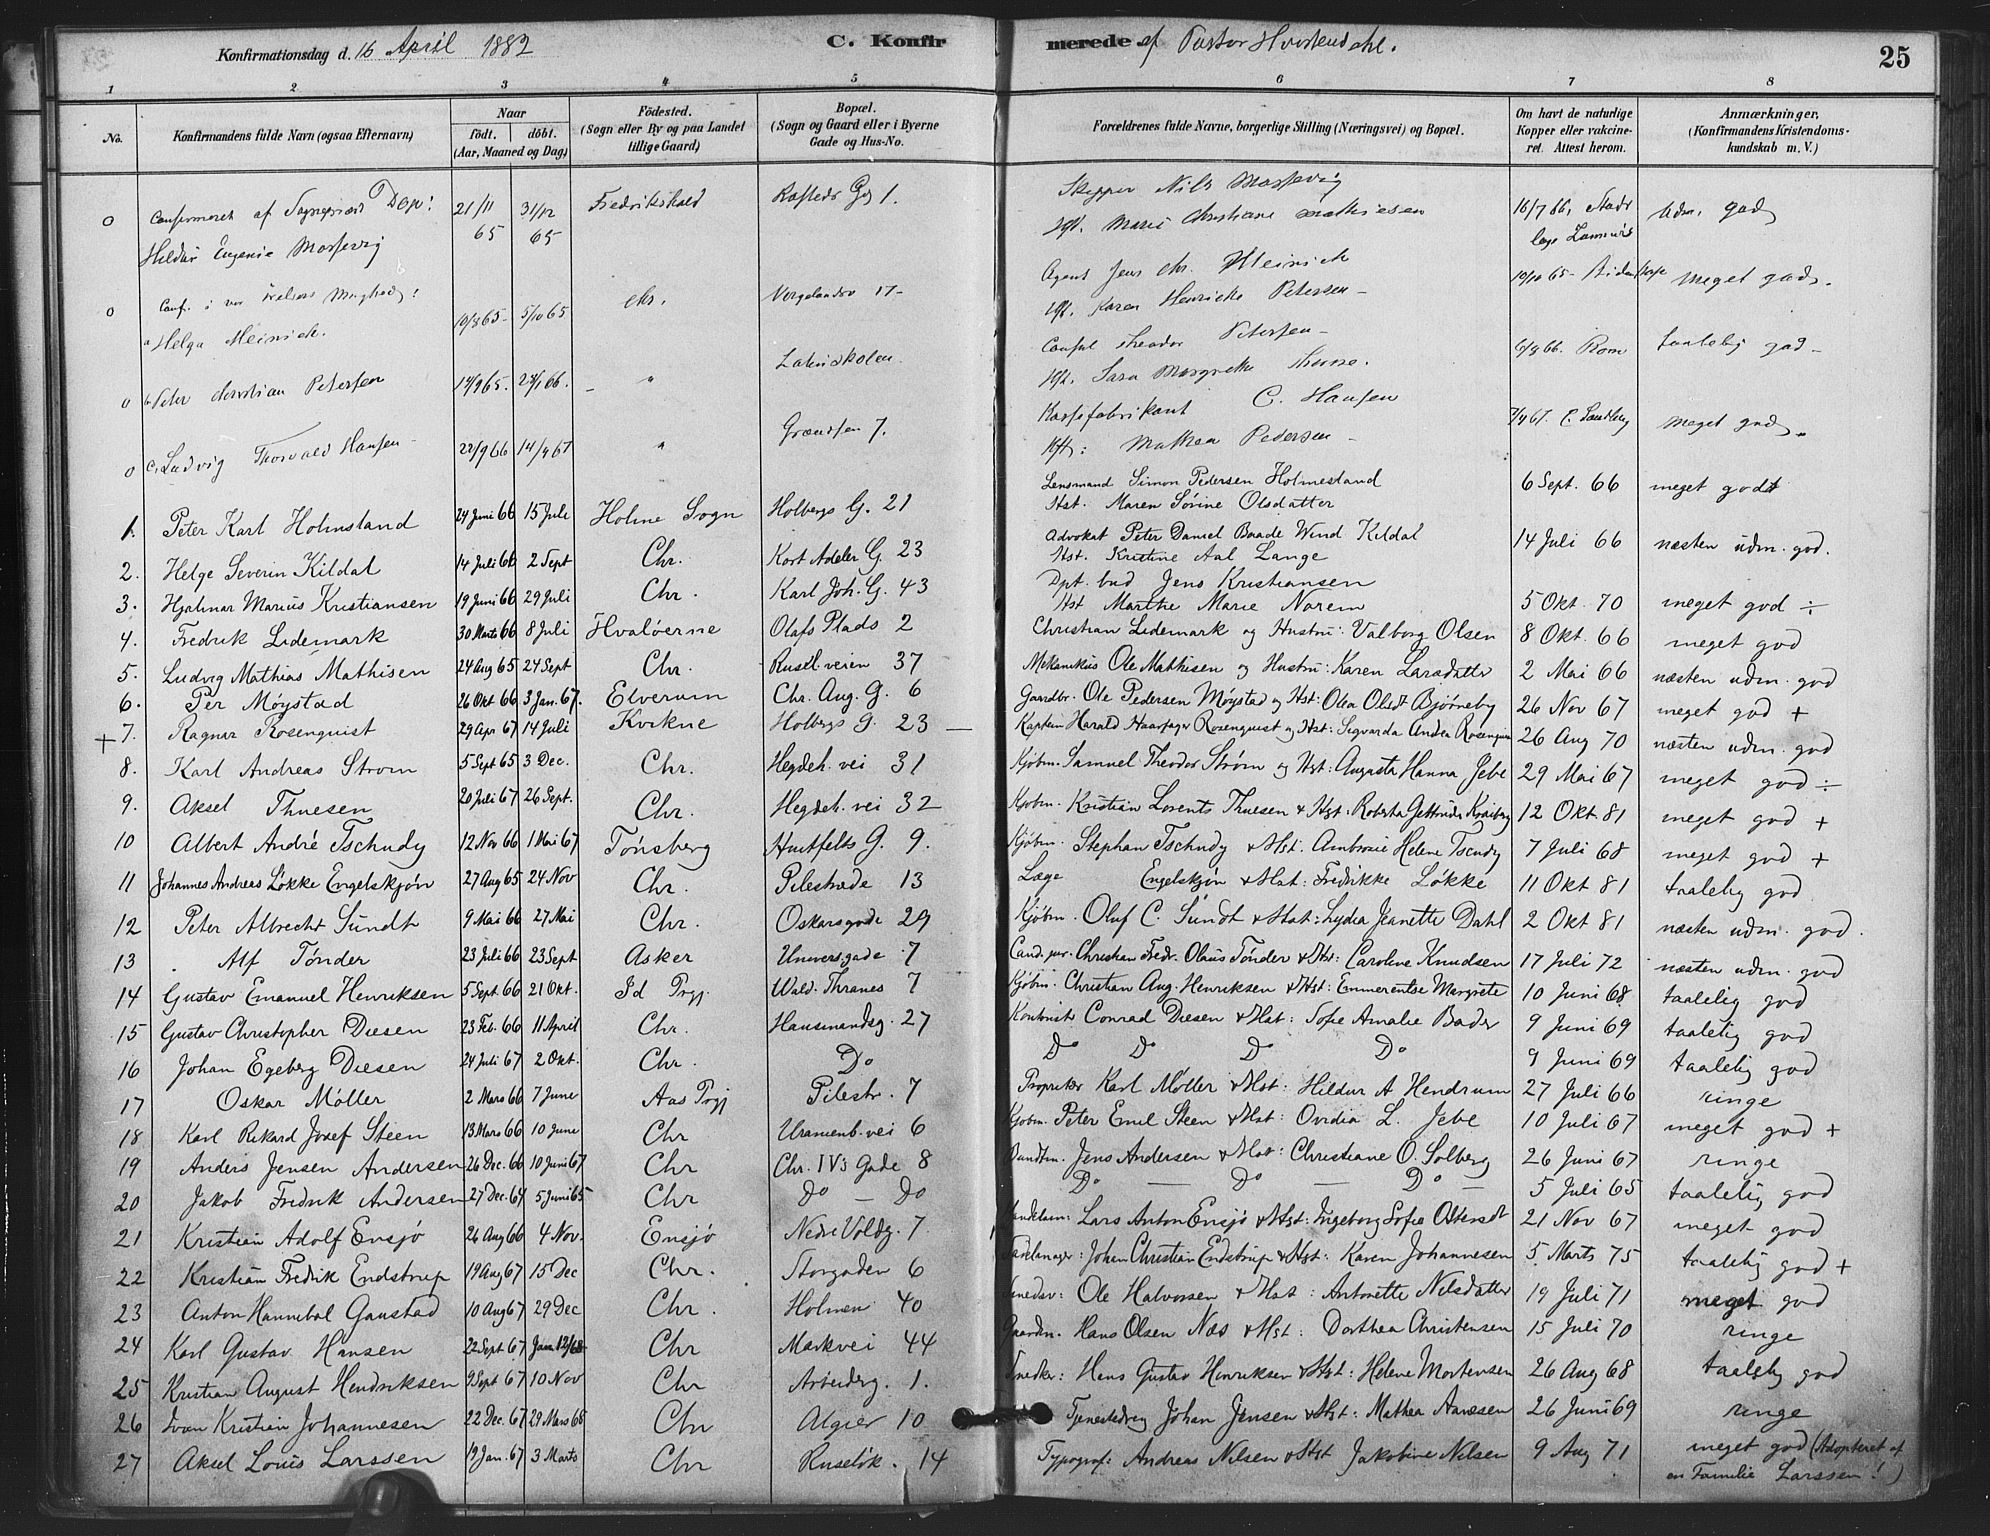 Konfirmationsdag d. 16 April 1882 C. Konfirmerede af Pastor Hvoslendahl. 25
1 2 3 4 5 6 7 8
No. Konfirmandens fulde Navn (ogsaa Efternavn) Naar födt. döbt. (Aar, Maaned og Dag) Födested. (Sogn eller By og paa Landet tillige Gaard) Bopæl. (Sogn og Gaard eller i Byerne Gade og Hus-No. Forældrenes fulde Navne, borgerlige Stilling (Næringsvei) og Bopæl. Om havt de naturlige Kopper eller vakcineret. Attest herom. Anmærkninger. (Konfirmandens Kristendomskundskab m. V.)
0 Confirmeret af Sognepræst
Hildur Eugenie Mossevig 21/11 65 31/12 65 Fredrikshald Gd 1. Skipper Nils Mossevig Hst. Marie Christiane Mathiesen 16/7 66, Udm. god
0 Conf. i vor Frelsers Menighed:
a Helga Heinrich. 19/8 65 5/10 65 Chr. 17 Agent Jens Chr. Heinrich Hst. Karen Henrikke Petersen 19/10 65 meget god.
0 b Peter Christian Petersen 14/9 65. 24/1 66. " Latinskolen. Consul Theodor Petersen Hst. Sara Margrethe 6/9 66. taalelig god
0 c. Ludvig Thorvald Hansen 22/9 66 14/4 67 " Grændsen 7. C. Hansen Hst: Mathea Pedersen meget god.
1. Peter Karl Holmsland 24 Juni 66 15 Juli Holme Sogn Holbergs G. 21 Lensmand Simon Pedersen Holmesland Hst. Maren Sörine Olsdatter 6 Sept. 66 meget godt
2. Helge Severin Kildal 14 Juli 66 2 Sept Chr. Kort Adeler G. 23 Advokat Peter Daniel Baade Wind Kildal Hst. Kristine Aal Lange 14 Juli 66 næsten udm. god.
3. Hjalmar Marius Kristiansen 19 Juni 66 29 Juli Chr. Karl Joh. G. 43 Dpt. bud Jens Kristiansen Hst Marthe Marie Norem 5 Okt. 70 meget god ÷
4. Fredrik Lidemark 30 Marts 66 8 Juli Hvalöerne Olafs Plads 2 Christian Lidemark og Hustru: Valborg Olsen 8 Okt. 66 meget god
5. Ludvig Mathias Mathisen 24 Aug 65 24 Sept Chr. Rusel. veien 37 Mekanikus Ole Mathisen og Hustru: Karen Larsdatter 2 Mai 66 næsten udm. god
6. Per Möystad 26 Okt 66 3 Jan. 67. Elverum Chr. Aug. G. 6 Gaardbr. Ole Pedersen Möystad og Hst: Olea Olsdt Bjørneby 26 Nov 67 meget god +
+ 7. Ragnar Rosenquist 29 Apr 67 14 Juli Kvikne Holbergs G. 23 — Kaptein Harald Haarfager Rosenquist og Hst: Sigvarda Andrea Rosenquist 26 Aug 70 næsten udm. god
8. Karl Andreas Strøm 5 Sept 65 3 Dec. Chr. Hegdeh. vei 31 Kjöbm. Samuel Theodor Strøm og Hst: Augusta Hanna Jebe 29 Mai 67 meget god ÷
9. Aksel Thuesen 20 Juli 67 26 Sept. Chr. Hegdeh. vei 32 Kjöbm. Kristian Lorents Thuesen & Hst: Roberta Gertrude 12 Okt 81 meget god +
10 Albert André Tschudy 12 Nov 66 1 Mai 67 Tönsberg Huitfelts G. 9. Kjöbm. Stephan Tschudy & Hst. Ambrosie Helene Tschudy 7 Juli 68 meget god +
11 Johannes Andreas Lökke Engelskjön 27 Aug 65 24 Nov Chr. Pilestræde 13 Læge Engelskjøn & Hst: Fredrikke Løkke 11 Okt 81 taalelig god
12 Peter Albrecht Sundt 9 Mai 66 27 Mai Chr. Oskarsgade 29 Kjøbm. Oluf C. Sundt & Hst: Lydia Jeanette Dahl 2 Okt 81 næsten udm. god.
13 Alf Tönder 23 Juli 66 23 Sept Asker Univers.gade 7 Cand. jur. Christian Fredr. Olaus Tönder & Hst: Caroline Knudsen 17 Juli 72 næsten udm. god
14 Gustav Emanuel Henriksen 5 Sept. 66 21 Okt. Id Prgj. Wald. Thranes 7 Kjöbm. Christian Aug. Henriksen & Hst: Emmerentse Margrete 10 Juni 68 taalelig god
15 Gustav Christopher Diesen 23 Feb. 66 11 April Chr. Hausmandsg. 27 Kontorist Conrad Diesen & Hst: Sofie Amalie Bader 9 Juni 69 taalelig god
16 Johan Egeberg Diesen 24 Juli 67 2 Okt. Chr. Do Do Do Do Do 9 Juni 69 taalelig god
17 Oskar Möller 2 Mars 66 7 June Aas Prgj Pilestr. 7 Proprietær Karl Møller & Hst: Hildur A Hendrum 27 Juli 66 ringe
18 Karl Rikard Josef Steen 13 Mars 66 10 June Chr Uranienb. vei 6 Kjøbm. Peter Emil Steen & Hst: Ovidia L. Jebe 10 Juli 67 meget god +
19 Anders Jensen Andersen 26 Dec. 66 10 Juni 67 Chr Chr. IVs Gade 8 Jens Andersen & Hst: Christiane O. Solberg 26 Juni 67 ringe
20 Jakob Fredrik Andersen 27 Dec. 64 5 Juni 65 Chr Do — Do Do — Do — Do — 5 Juli 65 taalelig god
21 Kristian Adolf Ensjö 26 Aug 66 4 Nov. Ensjö Nedre Voldg. 7 Lars Anton Ensjø & Hst: Ingeborg Sofie Olsensdt 21 Nov 67 meget god
22 Kristian Fredrik Endstrup 19 Aug 67 15 Dec Chr. Storgaden 6 Johan Christian Endstrup & Hst: Karen Johannesen 5 Marts 75 taalelig god +
23 Anton Hannibal Ganstad 10 Aug 67 29 Dec Chr. Holmen 40 Ole Halvorsen & Hst: Antonette Nilsdatter 19 Juli 71 meget god
24 Karl Gustav Hansen 22 Sept 67 Jan. 12/68 Chr Markvei 44 Hans Olsen Næs & Hst: Dorthea Christensen 15 Juli 70 ringe
25 Kristian August Hendriksen 9 Sept 67 10 Nov Chr Arbeiderg. 1. Snedker: Hans Gustav Henriksen & Hst: Helene Mortensen 26 Aug 68 taalelig god
26 Ivan Kristian Johannesen 22 Dec. 67 29 Mars 68 Chr Algier 10 Tjenestedreng Johan Jensen & Hst: Mathea Aanesen 26 Juni 69 ringe
27 Aksel Louis Larssen 19 Jan. 67 3 Marts Chr Ruselök. 14 Typograf: Andreas Nilsen & Hst Jakobine Nilsen 9 Aug 71 meget god (Adopteret af en Familie Larssen!)